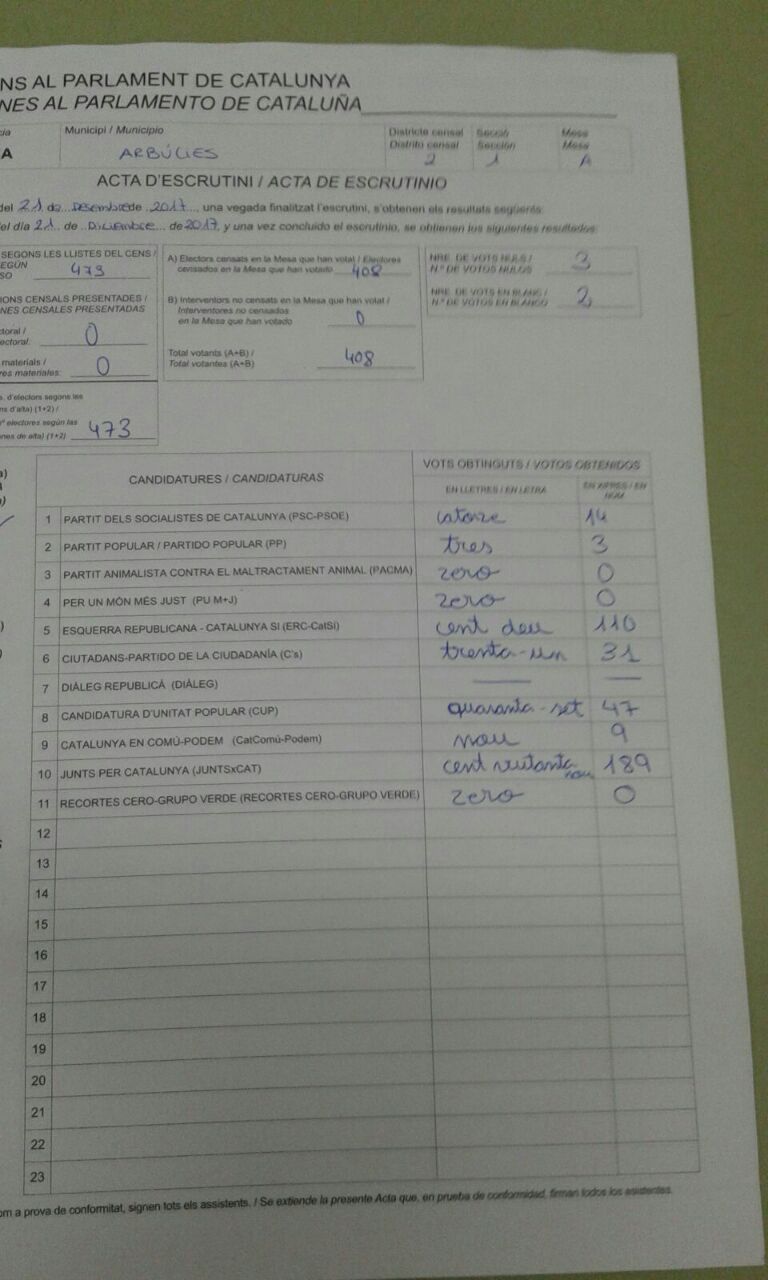 NS AL PARLAMENT DE CATALUNYA
NES AL PARLAMENTO DE CATALUÑA
cia Municipi / Municipio Districte censal Secció Mesa
Distrito censal Sección Mesa
A ARBÚCIES 2 1 A
ACTA D'ESCRUTINI / ACTA DE ESCRUTINIO
del 21 de Desembre de 2017, una vegada finalitzat l'escrutini, s'obtenen els resultats següents:
l día 21 de Diciembre de 2017, y una vez concluido el escrutinio, se obtienen los siguientes resultados:
SEGONS LES LLISTES DEL CENS /
EGÚN
SO 473
A) Electors censats en la Mesa que han votat / Electores
censados en la Mesa que han votado 408
NRE. DE VOTS NULS /
N.º DE VOTOS NULOS 3
IONS CENSALS PRESENTADES /
NES CENSALES PRESENTADAS
B) Interventors no censats en la Mesa que han votat /
Interventores no censados
en la Mesa que han votado 0
NRE. DE VOTS EN BLANC /
N.º DE VOTOS EN BLANCO 2
toral /
ectoral: 0
Total votants (A+B) /
Total votantes (A+B) 408
materials /
res materiales: 0
s. d'electors segons les
ns d'alta) (1+2) /
nº electores según las
nes de alta) (1+2) 473
CANDIDATURES / CANDIDATURAS VOTS OBTINGUTS / VOTOS OBTENIDOS
EN LLETRES / EN LETRA EN XIFRES / EN NÚM.
1 PARTIT DELS SOCIALISTES DE CATALUNYA (PSC-PSOE) catorze 14
2 PARTIT POPULAR / PARTIDO POPULAR (PP) tres 3
3 PARTIT ANIMALISTA CONTRA EL MALTRACTAMENT ANIMAL (PACMA) zero 0
4 PER UN MÓN MÉS JUST (PU M+J) zero 0
5 ESQUERRA REPUBLICANA - CATALUNYA SI (ERC-CatSí) cent deu 110
6 CIUTADANS-PARTIDO DE LA CIUDADANÍA (C's) trenta-un 31
7 DIÀLEG REPUBLICÀ (DIÀLEG)
8 CANDIDATURA D'UNITAT POPULAR (CUP) quaranta-set 47
9 CATALUNYA EN COMÚ-PODEM (CatComú-Podem) nou 9
10 JUNTS PER CATALUNYA (JUNTSxCAT) cent vuitanta nou 189
11 RECORTES CERO-GRUPO VERDE (RECORTES CERO-GRUPO VERDE) zero 0
12
13
14
15
16
17
18
19
20
21
22
23
om a prova de conformitat, signen tots els assistents. / Se extiende la presente Acta que, en prueba de conformidad, firman todos los asistentes.